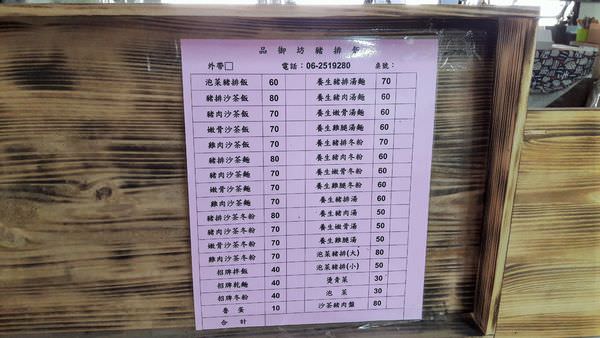 品御坊豬排飯
外帶□ 電話：06-2519280 桌號：
泡菜豬排飯 60 養生豬排湯麵 70
豬排沙茶飯 80 養生豬肉湯麵 60
豬肉沙茶飯 70 養生嫩骨湯麵 60
嫩骨沙茶飯 70 養生雞腿湯麵 60
雞肉沙茶飯 70 養生豬排冬粉 70
豬排沙茶麵 80 養生豬肉冬粉 60
豬肉沙茶麵 70 養生嫩骨冬粉 60
嫩骨沙茶麵 70 養生雞腿冬粉 60
雞肉沙茶麵 70 養生豬排湯 60
豬排沙茶冬粉 80 養生豬肉湯 50
豬肉沙茶冬粉 70 養生嫩骨湯 50
嫩骨沙茶冬粉 70 養生雞腿湯 50
雞肉沙茶冬粉 70 泡菜豬排(大) 80
招牌拌飯 40 泡菜豬排(小) 50
招牌乾麵 40 燙青菜 30
招牌冬粉 40 泡菜 30
魯蛋 10 沙茶豬肉盤 80
合計